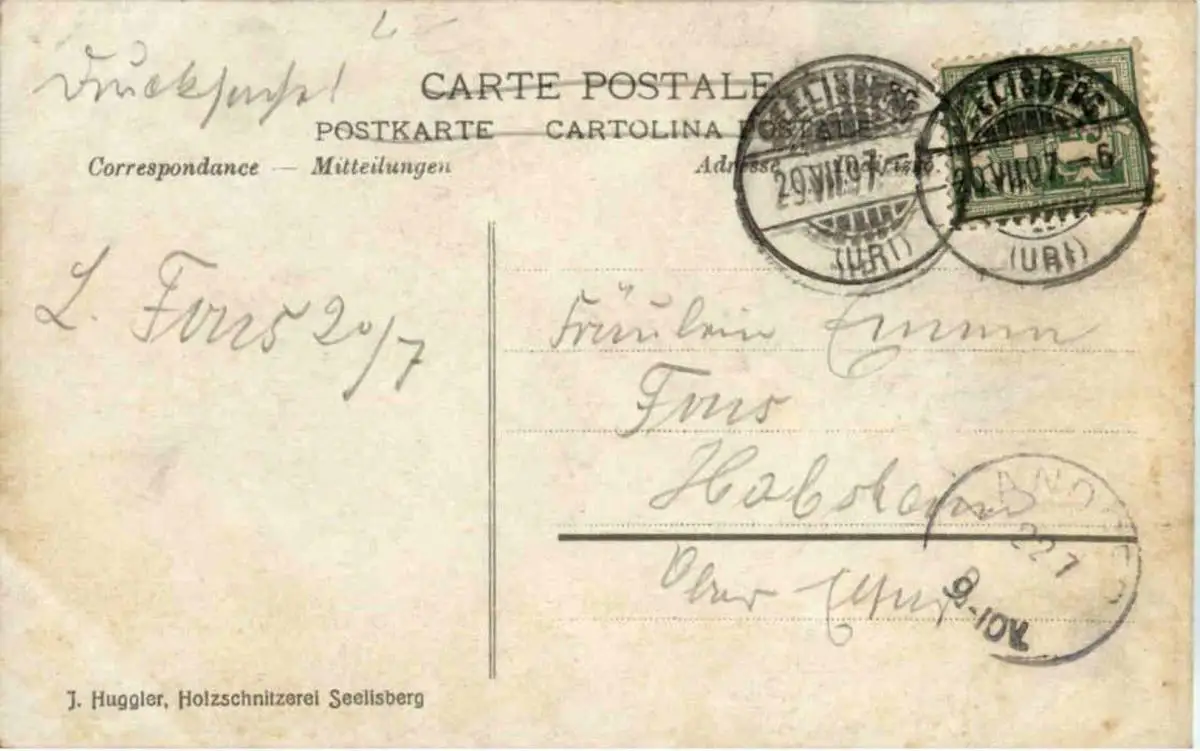 Drucksache!
CARTE POSTALE
POSTKARTE CARTOLINA POSTALE
Correspondance — Mitteilungen
Adresse
SEELISBERG
20.VII.07.
(URI)
SEELISBERG
20.VII.07.–6
(URI)
5
L. Fons 20/7
Fräulein Emma
Fons
Habsheim
Ober Elsass
22 7
9-10V.
J. Huggler, Holzschnitzerei Seelisberg